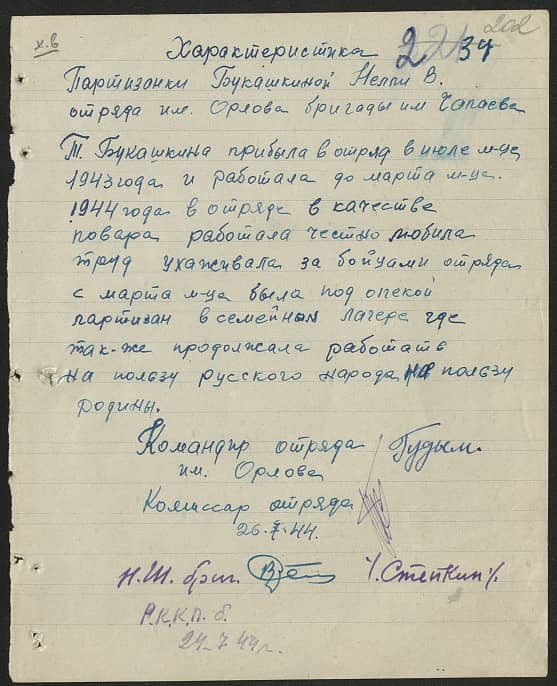 202
х.в
22 34
Характеристика
Партизанки Букашкиной Нелли В.
отряда им. Орлова бригады им Чапаева
Т. Букашкина прибыла в отряд в июле м-це
1943 года и работала до марта м-ца.
1944 года в отряде в качестве
повара работала честно любила
труд ухаживала за бойцами отряда
с марта м-ца была под опекой
партизан в семейном лагере где
так-же продолжала работать
на пользу русского народа, на пользу
родины.
Командир отряда Гудым.
им. Орлова
Комиссар отряда
26.7.44.
Н.Ш. бриг. /.Степкин/.
Р.К.К.П.б.
24.7.44г.